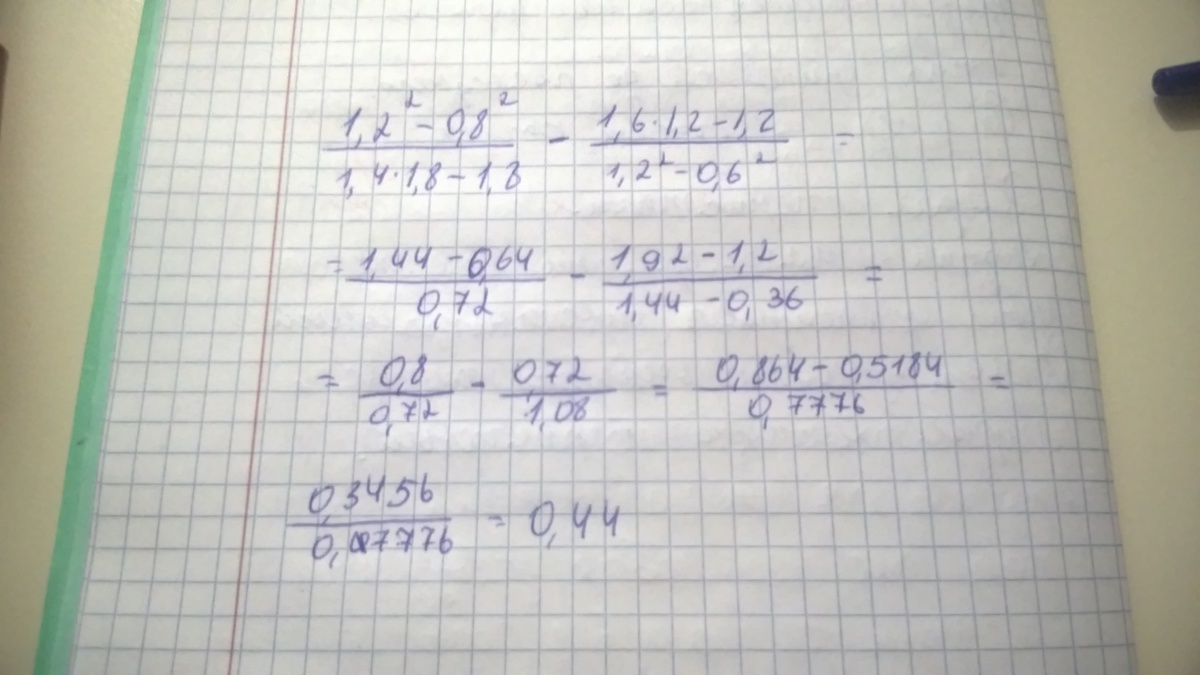 (1,2² - 0,8²)/(1,4·1,8 - 1,8) - (1,6·1,2 - 1,2)/(1,2² - 0,6²) =
= (1,44 - 0,64)/(0,72) - (1,92 - 1,2)/(1,44 - 0,36) =
= (0,8)/(0,72) - (0,72)/(1,08) = (0,864 - 0,5184)/(0,7776) =
(0,3456)/(0,7776) = 0,44